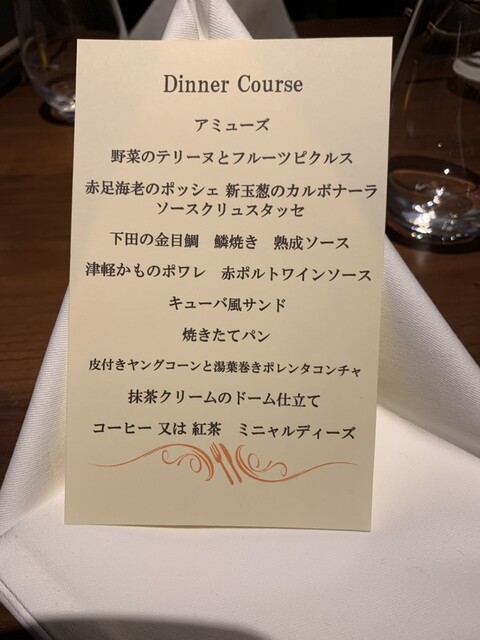 Dinner Course
アミューズ
野菜のテリーヌとフルーツピクルス
赤足海老のポッシェ 新玉葱のカルボナーラ
ソースクリュスタッセ
下田の金目鯛　鱗焼き　熟成ソース
津軽かものポワレ　赤ポルトワインソース
キューバ風サンド
焼きたてパン
皮付きヤングコーンと湯葉巻きポレンタコンチャ
抹茶クリームのドーム仕立て
コーヒー 又は 紅茶　ミニャルディーズ